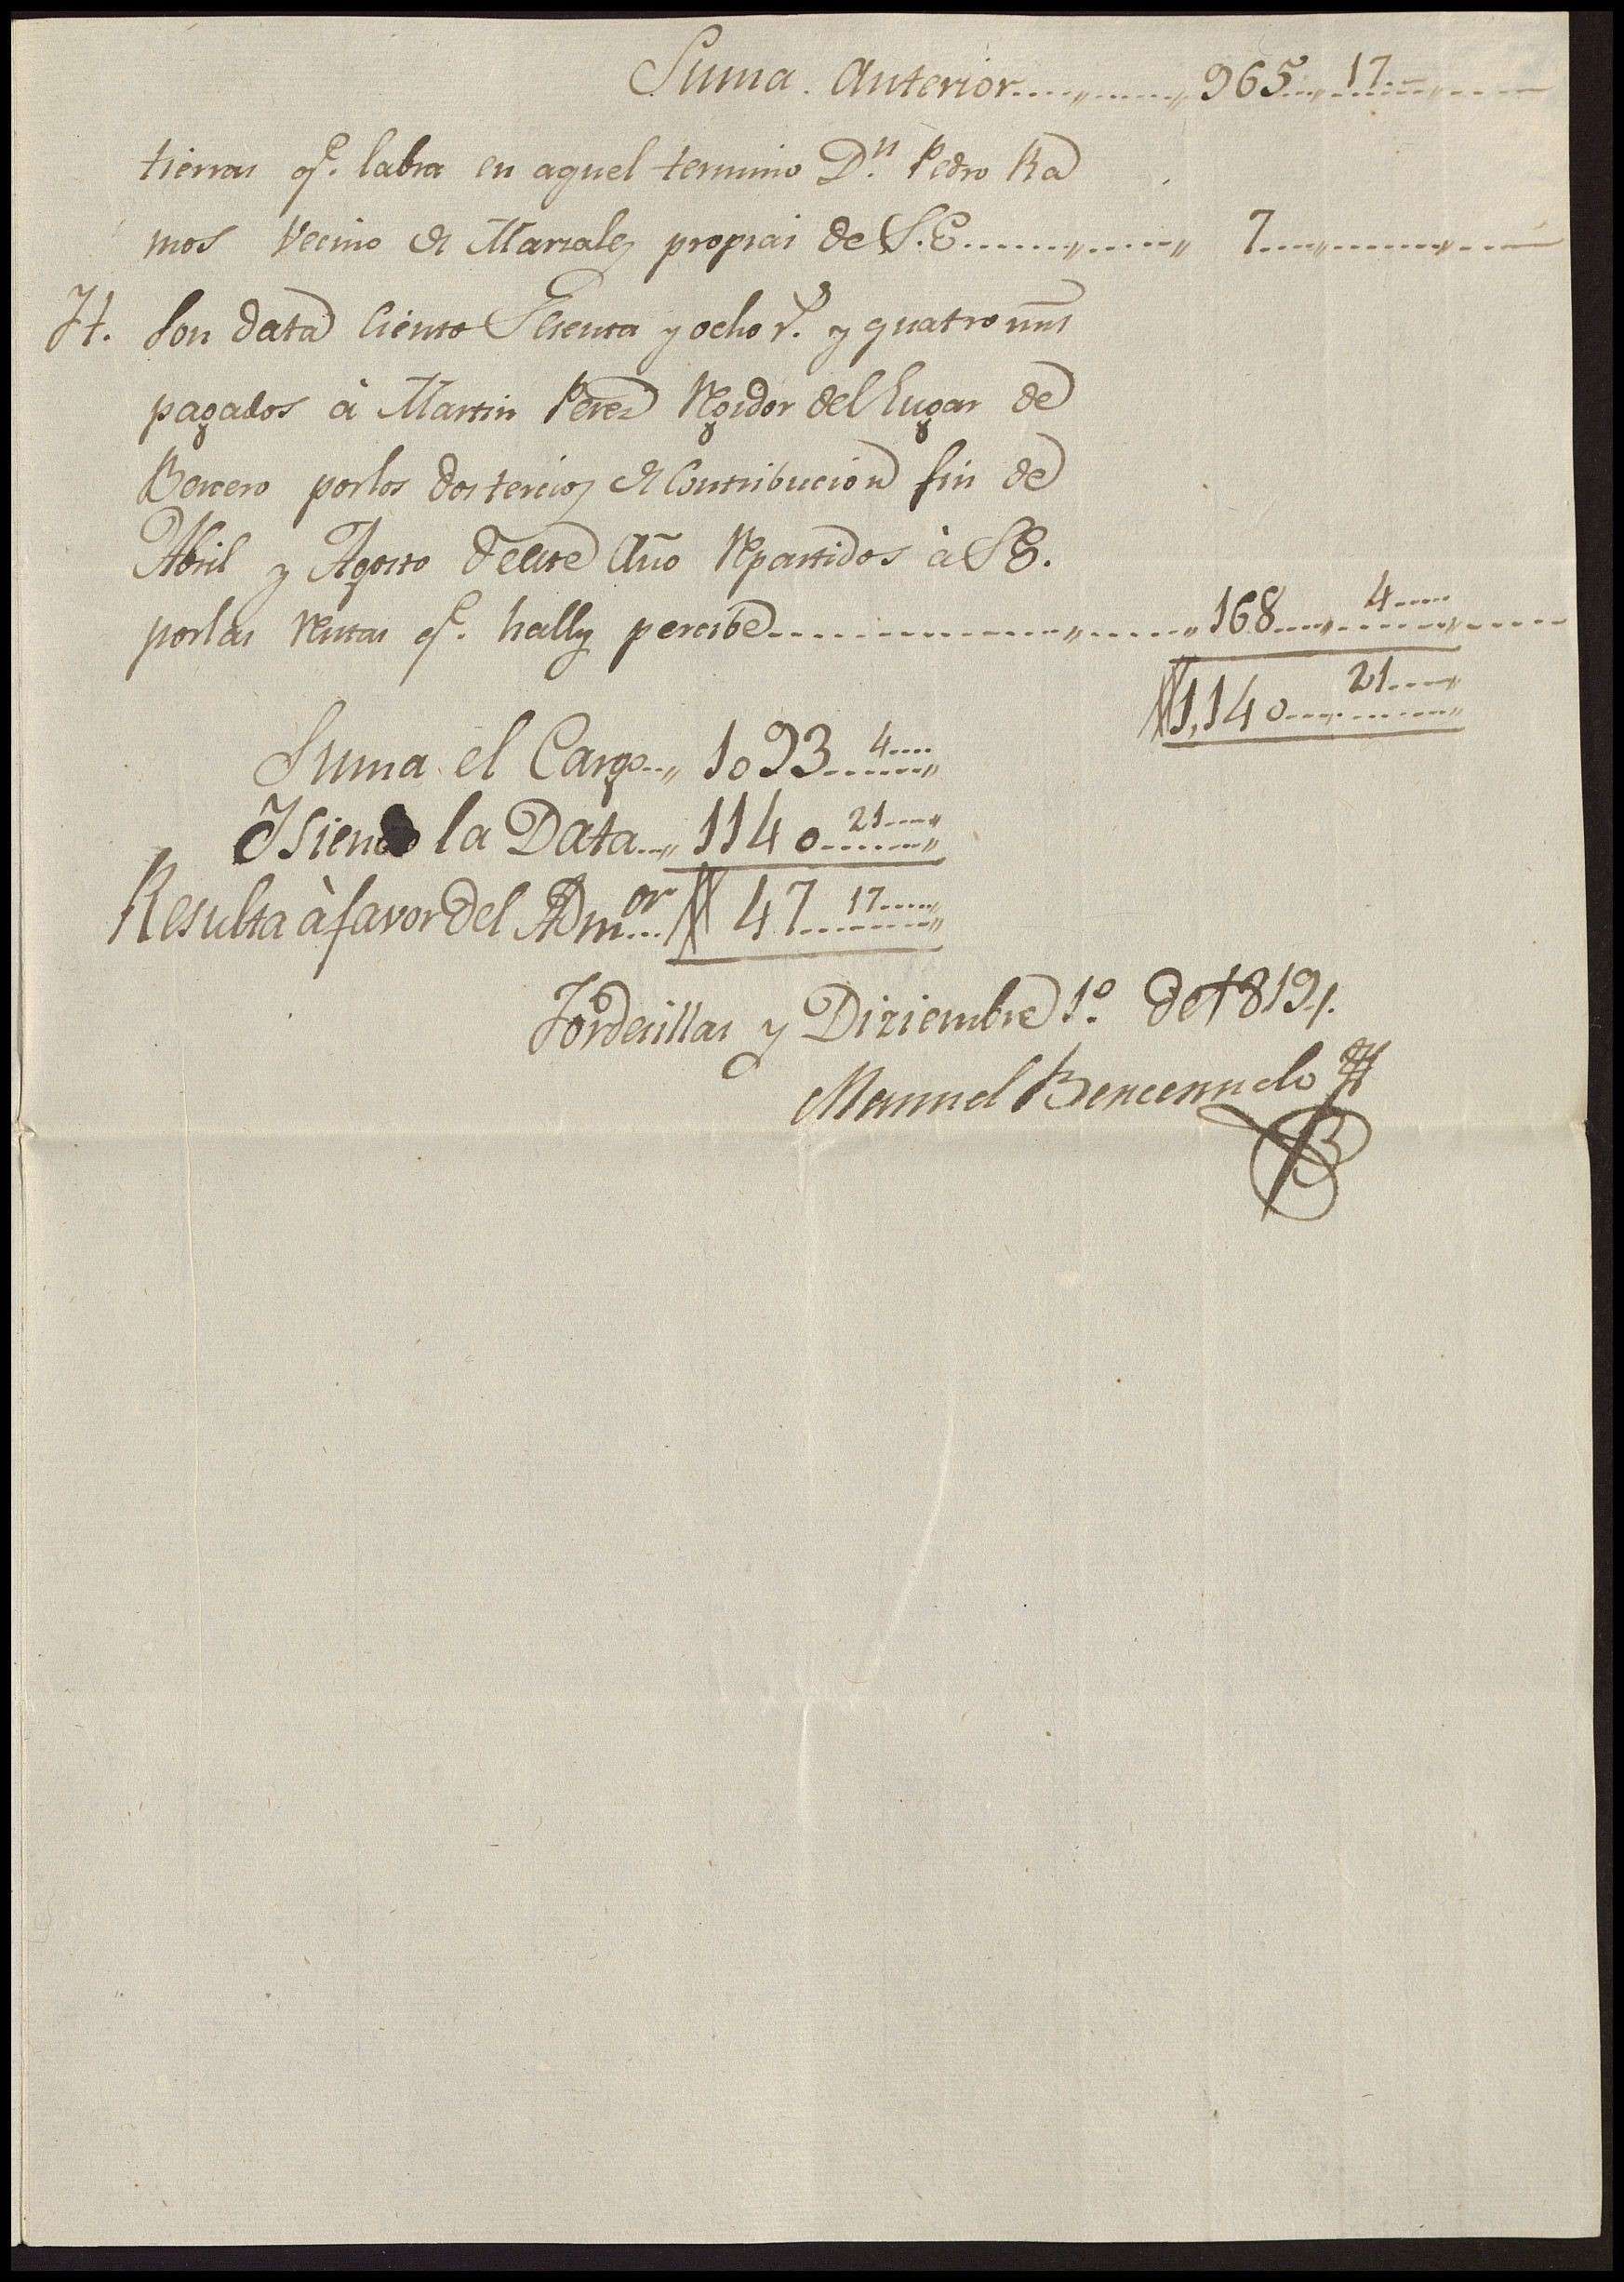 Suma. Anterior 965 17
tierras q.e labra en aquel termino D.n Pedro Ra
mos Vecino de Marzales propias de S.E. 7
It. Son data Ciento Sesenta y ocho r.s y quatro mrs
pagados à Martin Perez Rexidor del Lugar de
Bercero por los dos tercios de Contribucion fin de
Abril y Agosto de este Año Repartidos à S.E.
por las Rentas q.e hally percibe 168 4
1,140 21
Suma el Cargo 1093 4
Isiendo la Data 1140 21
Resulta à favor del Adm.or 47 17
Tordesillas y Diziembre 1.o de 1819.
Manuel Bencenuelo